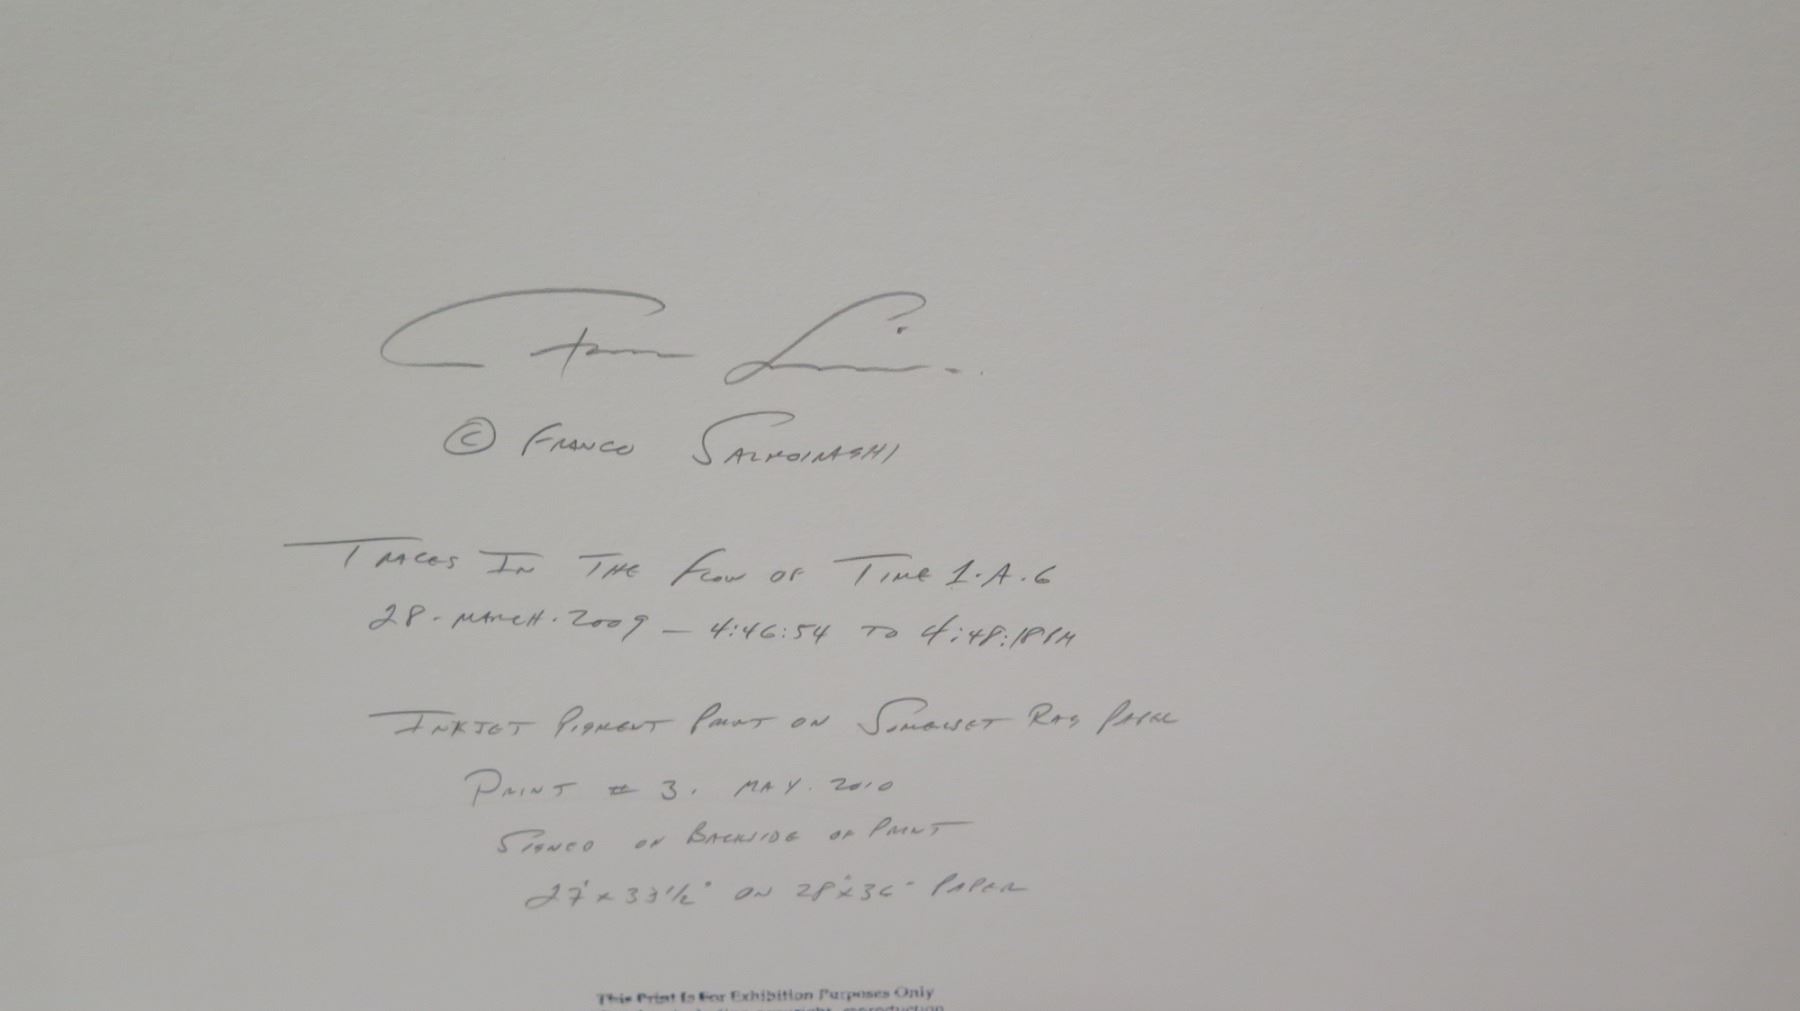 © FRANCO SALMOIRAGHI
TRACES IN THE FLOW OF TIME 1.A.6
28. MARCH. 2009 – 4:46:54 TO 4:48:18 PM
INKJET PIGMENT PRINT ON SOMERSET RAG PAPER
PRINT # 3. MAY. 2010
SIGNED ON BACKSIDE OF PRINT
27" x 33 1/2" ON 28" x 36" PAPER
This Print Is For Exhibition Purposes Only